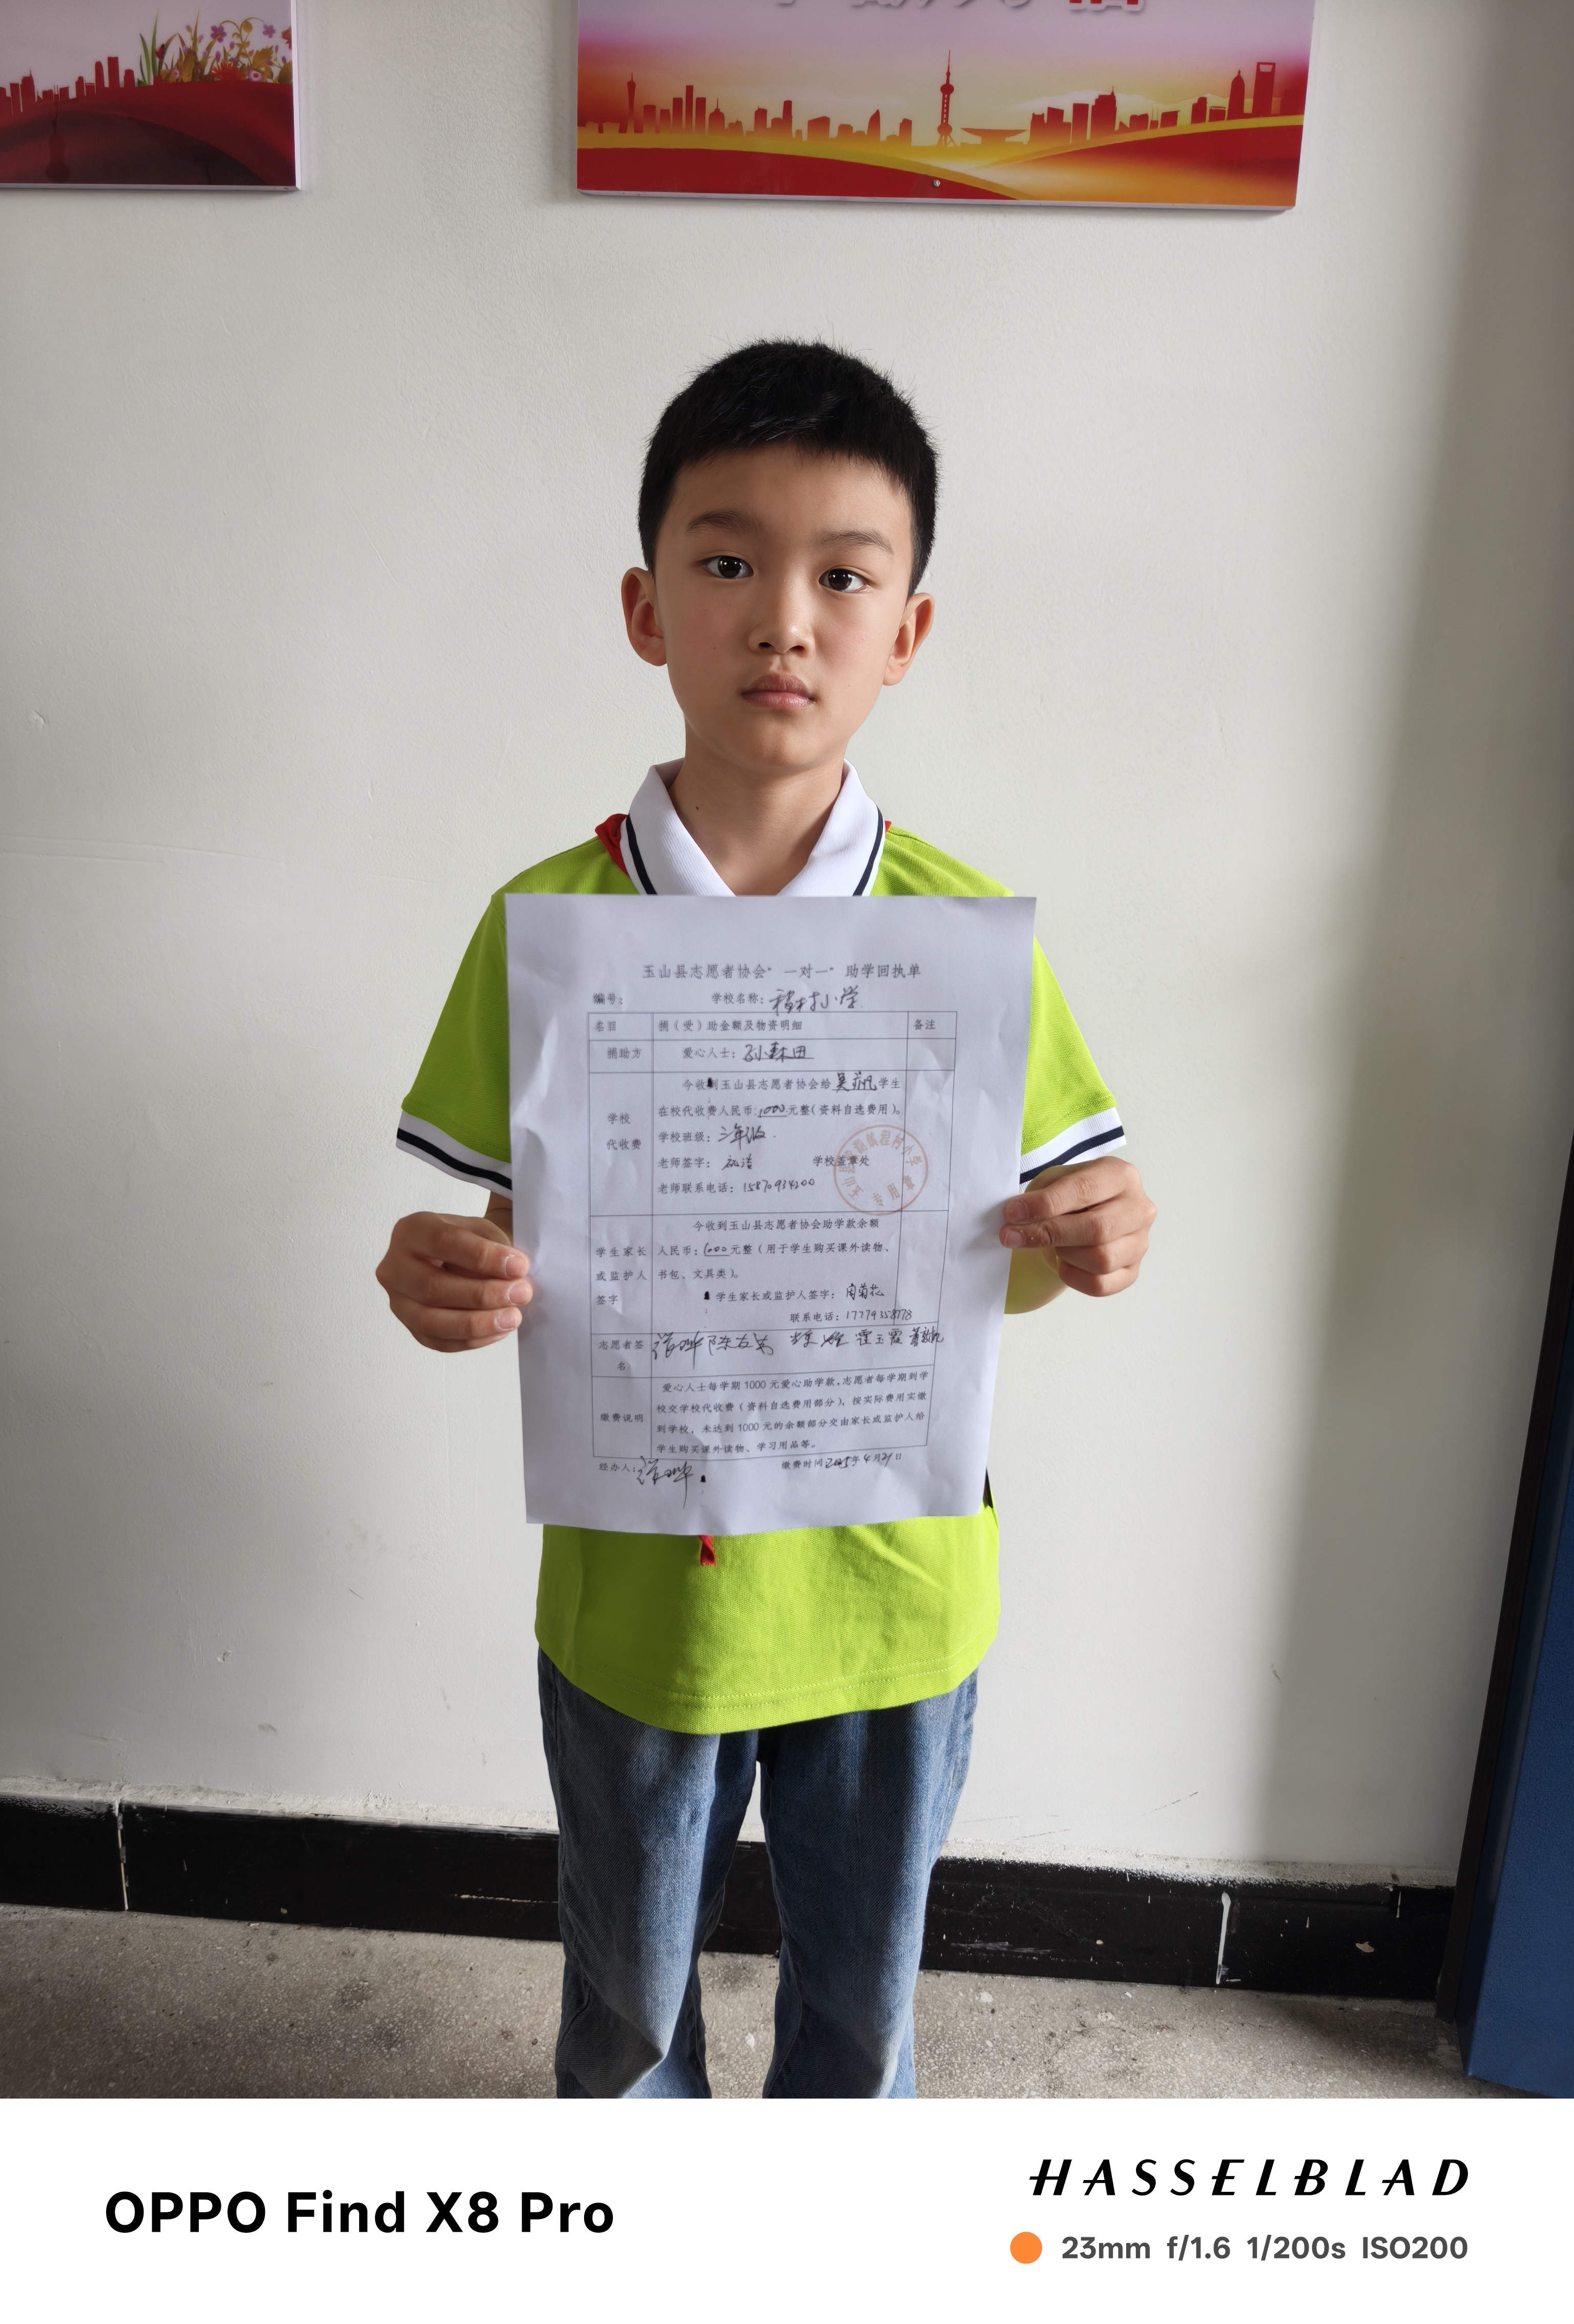 玉山县志愿者协会“一对一”助学回执单
编号： 学校名称：程村小学
名目 捐（受）助金额及物资明细 备注
捐助方 爱心人士：孙森田
今收到玉山县志愿者协会给吴 帆学生
在校代收费人民币：1000元整（资料自选费用）。
学校 代收费
学校班级：三年级
老师签字： 学校盖章处
程村小学
专用章
老师联系电话：15870934200
今收到玉山县志愿者协会助学款余额
学生家长或监护人签字
人民币：1000元整（用于学生购买课外读物、
书包、文具类）。
学生家长或监护人签字：周菊花
联系电话：17779358778
志愿者签名 陈友 霞玉霞
爱心人士每学期1000元爱心助学款，志愿者每学期到学
校交学校代收费（资料自选费用部分），按实际费用实缴
缴费说明
到学校，未达到1000元的余额部分交由家长或监护人给
学生购买课外读物、学习用品等。
经办人： 缴费时间2025年4月21日
OPPO Find X8 Pro
HASSELBLAD
23mm f/1.6 1/200s ISO200